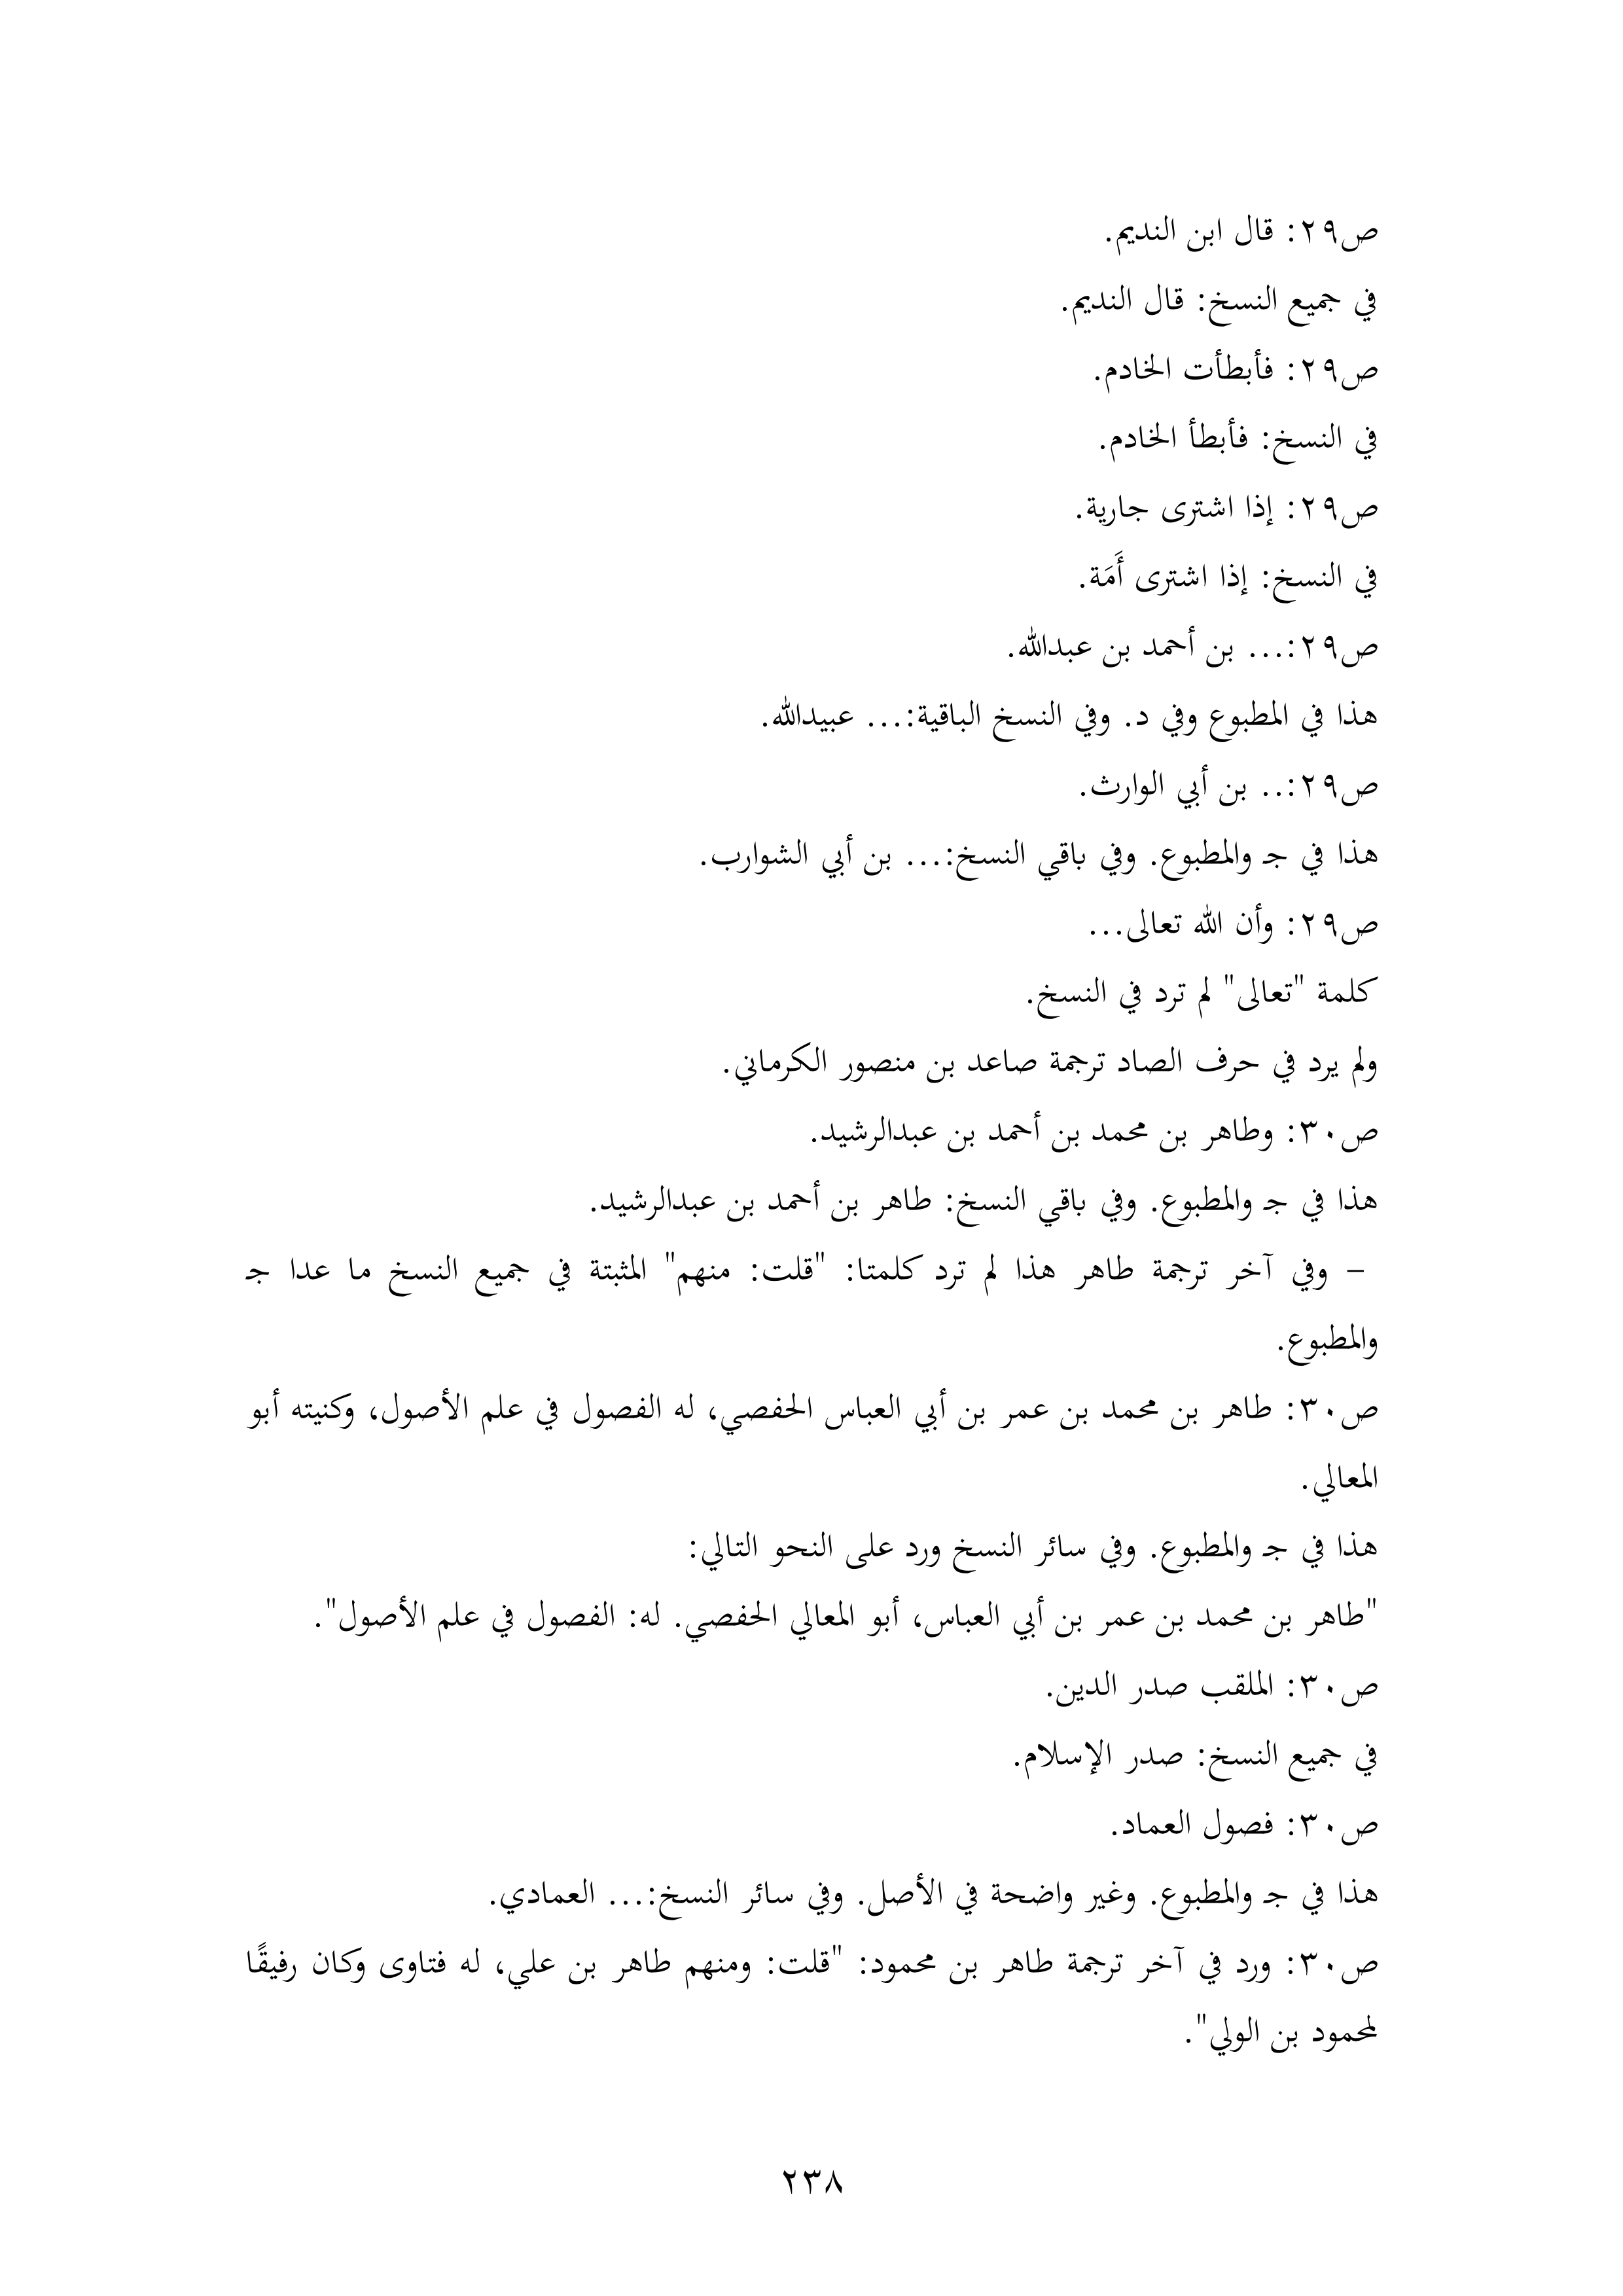 ص٢٩: قال ابن النديم.
في جميع النسخ: قال النديم.
ص٢٩: فأبطأت الخادم.
في النسخ: فأبطأ الخادم.
ص٢٩: إذا اشترى جارية.
في النسخ: إذا اشترى أَمَة.
ص٢٩:... بن أحمد بن عبدالله.
هذا في المطبوع وفي د. وفي النسخ الباقية:... عبيدالله.
ص٢٩:.. بن أبي الوارث.
هذا في جـ والمطبوع. وفي باقي النسخ:... بن أبي الشوارب.
ص٢٩: وأن الله تعالى...
كلمة "تعالى" لم ترد في النسخ.
ولم يرد في حرف الصاد ترجمة صاعد بن منصور الكرماني.
ص٣٠: وطاهر بن محمد بن أحمد بن عبدالرشيد.
هذا في جـ والمطبوع. وفي باقي النسخ: طاهر بن أحمد بن عبدالرشيد.
– وفي آخر ترجمة طاهر هذا لم ترد كلمتا: "قلت: منهم" المثبتة في جميع النسخ ما عدا جـ
والمطبوع.
ص٣٠: طاهر بن محمد بن عمر بن أبي العباس الحفصي، له الفصول في علم الأصول، وكنيته أبو
المعالي.
هذا في جـ والمطبوع. وفي سائر النسخ ورد على النحو التالي:
"طاهر بن محمد بن عمر بن أبي العباس، أبو المعالي الحفصي. له: الفصول في علم الأصول".
ص٣٠: الملقب صدر الدين.
في جميع النسخ: صدر الإسلام.
ص٣٠: فصول العماد.
هذا في جـ والمطبوع. وغير واضحة في الأصل. وفي سائر النسخ:... العمادي.
ص٣٠: ورد في آخر ترجمة طاهر بن محمود: "قلت: ومنهم طاهر بن علي، له فتاوى وكان رفيقًا
لمحمود بن الولي".
٢٣٨